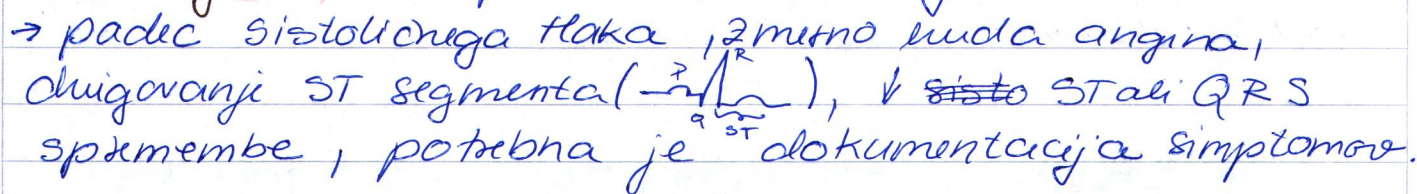 → padec sistoličnega tlaka, zmerno huda angina,
dvigovanje ST segmenta (P R Q ST), ↓ ~~sisto~~ ST ali QRS
spremembe, potrebna je dokumentacija simptomov.